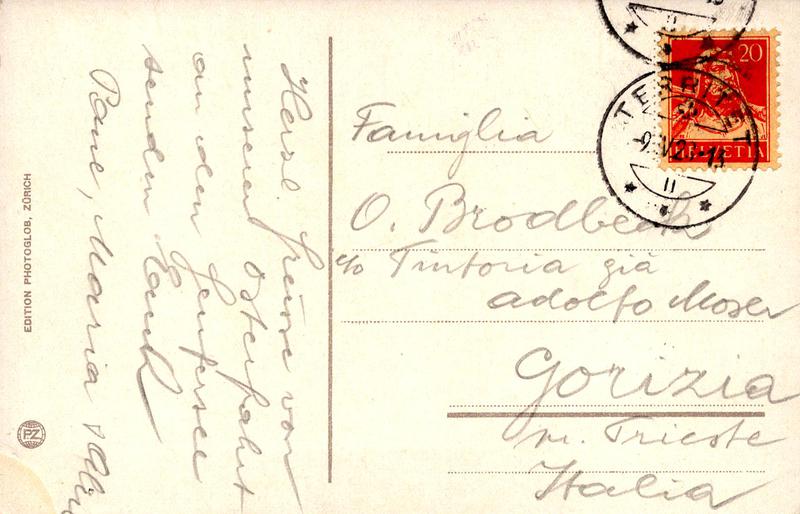 Herzl. Grüsse von
unserer Osterfahrt
an den Genfersee
senden Euch
Maria &
Famiglia
O. Brodbeck
c/o Tintoria già
Adolfo Moser
Gorizia
Trieste
Italia
20
HELVETIA
TERRITET
EDITION PHOTOGLOB, ZÜRICH
PZ